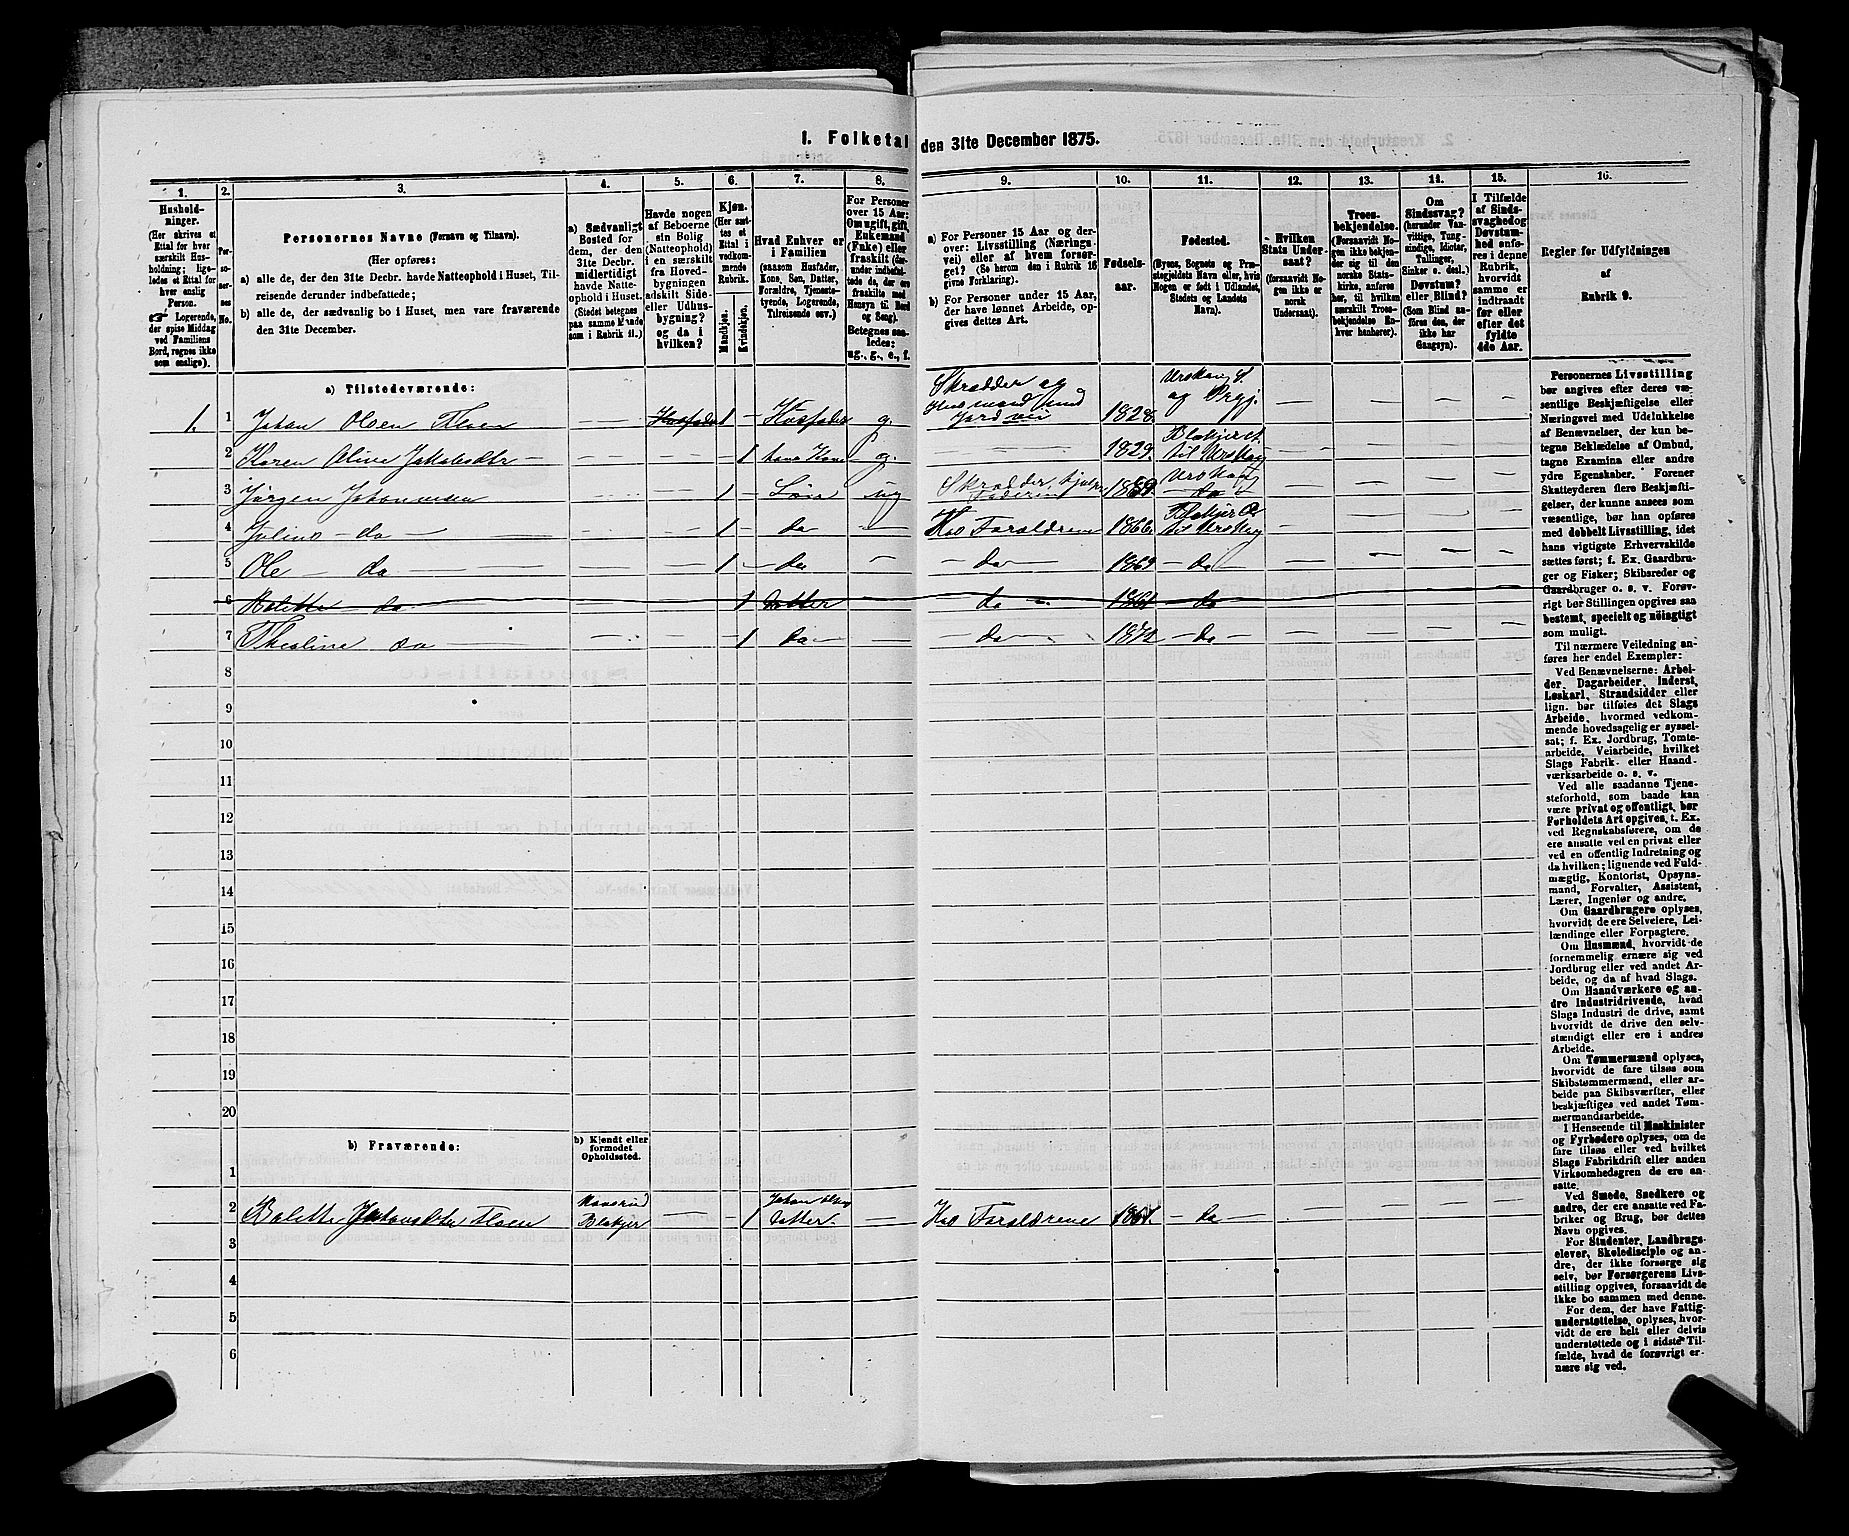 1. Folketal den 31te December 1875.
1. 2. 3. 4. 5. 6. 7. 8. 9. 10. 11. 12. 13. 14. 15. 16.
Hushold-
ninger.
(Her skrives et
Ettal for hver
særskilt Hus-
holdning; lige-
ledes et Ettal for
hver enslig
Person.
☞ Logerende,
der spise Middag
ved Familiens
Bord, regnes ikke
som enslige).
Per-
so-
ner-
nes
No.
Personernes Navne (Fornavn og Tilnavn).
(Her opføres:
a) alle de, der den 31te Decbr. havde Natteophold i Huset, Til-
reisende derunder indbefattede;
b) alle de, der sædvanlig bo i Huset, men vare fraværende
den 31te December.
a) Sædvanligt
Bosted for
dem, der den
31te Decbr.
midlertidigt
havde Natte-
ophold i Huset.
(Stedet betegnes
paa samme Maade
som i Rubrik 11.)
Havde nogen
af Beboerne
sin Bolig
(Natteophold)
i en særskilt
fra Hoved-
bygningen
adskilt Side-
eller Udhus-
bygning? og da i
hvilken?
Kjøn.
(Her sæt-
tes et
Ettal i
vedkom-
mende
Rubrik.
Mandkjøn.
Kvindekjøn.
Hvad Enhver er
i Familien
(saasom Husfader,
Kone, Søn, Datter,
Forældre, Tjeneste-
tyende, Logerende,
Tilreisende osv.)
For Personer
over 15 Aar:
Om ugift, gift,
Enkemand
(Enke) eller
fraskilt
Betegnes saa-
ledes:
ug., g., e., f.
a) For Personer 15 Aar og der-
over: Livsstilling (Nærings-
vei) eller af hvem forsør-
get? (Se herom den i Rubrik 16
givne Forklaring).
b) For Personer under 15 Aar,
der have lønnet Arbeide, op-
gives dettes Art.
Fødsels-
aar.
Fødested.
(Byens, Sognets og Præ-
stegjeldets Navn eller, hvis
Nogen er født i Udlandet,
Stedets og Landets
Navn).
Hvilken
Stats Under-
saat?
(forsaavidt No-
gen ikke er
norsk
Undersaat).
Troes-
bekjendelse.
(Forsaavidt No-
gen ikke bekjen-
der sig til den
norske Stats-
kirke, anføres
her, til hvilken
særskilt Troes-
bekjendelse En-
hver henhører).
Om
Sindssvag?
(herunder Van-
vittige, Tung-
sindige, Idioter,
Tullinger,
Sinker o. desl.)
Døvstum?
eller Blind?
(Som Blind an-
føres den, der
ikke har
Gangsyn).
I Tilfælde
af Sinds-
svaghed og
Døvstum-
hed anfø-
res i denne
Rubrik,
hvorvidt
samme er
indtraadt
før eller
efter det
fyldte
4de Aar.
Regler for Udfyldningen
af
Rubrik 9.
a) Tilstedeværende:
1. 1 Johan Olsen Floen — Husfader 1 — Husfader g. Skrædder og Husmand med Jord 1828. Urskoug S. og Prgj. — — — —
2 Karen Oline Jakobsdtr — — 1 hans Kone g. — 1829. Blakjer S. til Urskoug — — — —
3 Jørgen Johannesen — — 1 — Søn ug Skrædder, hjelper Faderen Urskoug — do — — — — —
4 Julius — do — — — 1 — do — Hos Forældrene 1866. Blakjer S. til Urskoug — — — —
5 Ole — do — — — 1 — do — — do — 1869 — do — — — — —
6 Bolette — do — 1 Datter — do — 1861 — do
7 Theoline do — — — 1 do — — — do — 1872 — do — — — — —
8
9
10
11
12
13
14
15
16
17
18
19
20
b) Fraværende:
b) Kjendt eller
formodet
Opholdssted.
1
2 Bolette Johansdtr Floen Blakjer — — 1 Johan Olsens Datter. — Hos Forældrene 1861. — do — — — — —
3
4
5
6
Personernes Livsstilling
bør angives efter deres væ-
sentlige Beskjæftigelse eller
Næringsvei med Udelukkelse
af Benævnelser, der kun be-
tegne Beklædelse af Ombud,
tagne Examina eller andre
ydre Egenskaber. Forener
Skatteyderen flere Beskjæfti-
gelser, der kunne ansees som
væsentlige, bør han opføres
med dobbelt Livsstilling, idet
hans vigtigste Erhvervskilde
sættes først; f. Ex. Gaardbru-
ger og Fisker; Skibsreder og
Gaardbruger o. s. v. Forøv-
rigt bør Stillingen opgives saa
bestemt, specielt og nøiagtigt
som muligt.
Til nærmere Veiledning an-
føres her endel Exempler:
Ved Benævnelserne: Arbei-
der, Dagarbeider, Inderst,
Løskarl, Strandsidder eller
lign. bør tilføies det Slags
Arbeide, hvormed vedkom-
mende hovedsagelig er syssel-
sat; f. Ex. Jordbrug, Tomte-
arbeide, Veiarbeide, hvilket
Slags Fabrik- eller Haand-
værksarbeide o. s. v.
Ved alle saadanne Tjene-
steforhold, som baade kan
være privat og offentligt, bør
Forholdets Art opgives, t. Ex.
ved Regnskabsførere, om de
ere ansatte ved en privat eller
ved en offentlig Indretning og
da hvilken; lignende ved Fuld-
mægtig, Kontorist, Opsyns-
mand, Forvalter, Assistent,
Lærer, Ingeniør og andre.
Om Gaardbrugere oplyses,
hvorvidt de ere Selveiere, Lei-
lændinge eller Forpagtere.
Om Husmænd, hvorvidt de
fornemmelig ernære sig ved
Jordbrug eller ved andet Ar-
beide, og da af hvad Slags.
Om Haandværkere og an-
dre Industridrivende, hvad
Slags Industri de drive, samt
hvorvidt de drive den selv-
stændigt eller ere i andres
Arbeide.
Om Tømmermænd oplyses,
hvorvidt de fare tilsøs som
Skibstømmermænd, eller ar-
beide paa Skibsværfter, eller
beskjæftiges ved andet Tøm-
mermandsarbeide.
I Henseende til Maskinister
og Fyrbødere oplyses, om de
fare tilsøs eller ved hvilket
Slags Fabrikdrift eller anden
Virksomhedsgren de ere an-
satte.
Ved Smede, Snedkere og
andre, der ere ansatte ved Fa-
briker og Brug, bør dettes
Navn opgives.
For Studenter, Landbrugs-
elever, Skoledisciple og an-
dre, der ikke forsørge sig
selv, bør Forsørgerens Livs-
stilling opgives, forsaavidt de
ikke bo sammen med denne.
For dem, der have Fattig-
understøttelse, oplyses, hvor-
vidt de ere helt eller delvis
understøttede og i sidste Til-
fælde, hvad de forøvrigt er-
nære sig ved.